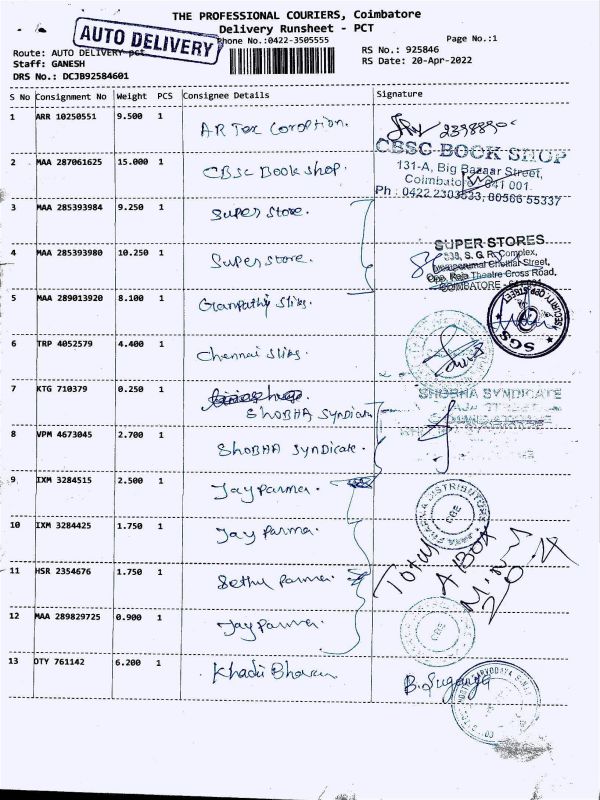 THE PROFESSIONAL COURIERS, Coimbatore
Delivery Runsheet - PCT
AUTO DELIVERY
Phone No.:0422-3505555
Page No.:1
Route: AUTO DELIVERY pct
RS No.: 925846
Staff: GANESH
RS Date: 20-Apr-2022
DRS No.: DCJB92584601
S No Consignment No Weight PCS Consignee Details Signature
1 ARR 10250551 9.500 1 AR Tex
2 MAA 287061625 15.000 1 CBSC Book shop.
CBSC BOOK SHOP
131-A, Big Bazaar Street,
Coimbatore 641 001.
Ph : 0422 2303533, 80566 55337
3 MAA 285393984 9.250 1 Super store.
4 MAA 285393980 10.250 1 Super store.
SUPER STORES
S. G. R. Complex,
Chettiar Street,
Opp. Raja Theatre Cross Road,
COIMBATORE
5 MAA 289013920 8.100 1 Ganpathy silks.
SGS
6 TRP 4052579 4.400 1 Chennai silks.
7 KTG 710379 0.250 1
SHOBHA Syndicate
SHOBHA SYNDICATE
8 VPM 4673045 2.700 1 SHOBHA Syndicate.
9 IXM 3284515 2.500 1 Jay Parma.
DISTRIBUTORS
CBE
10 IXM 3284425 1.750 1 Jay Parma.
Total
4 BOX
11 HSR 2354676 1.750 1 Sethu Parma.
12 MAA 289829725 0.900 1 Jay Parma.
CBE
13 OTY 761142 6.200 1 Khadi Bhavan
B. Suganya
SARVODAYA